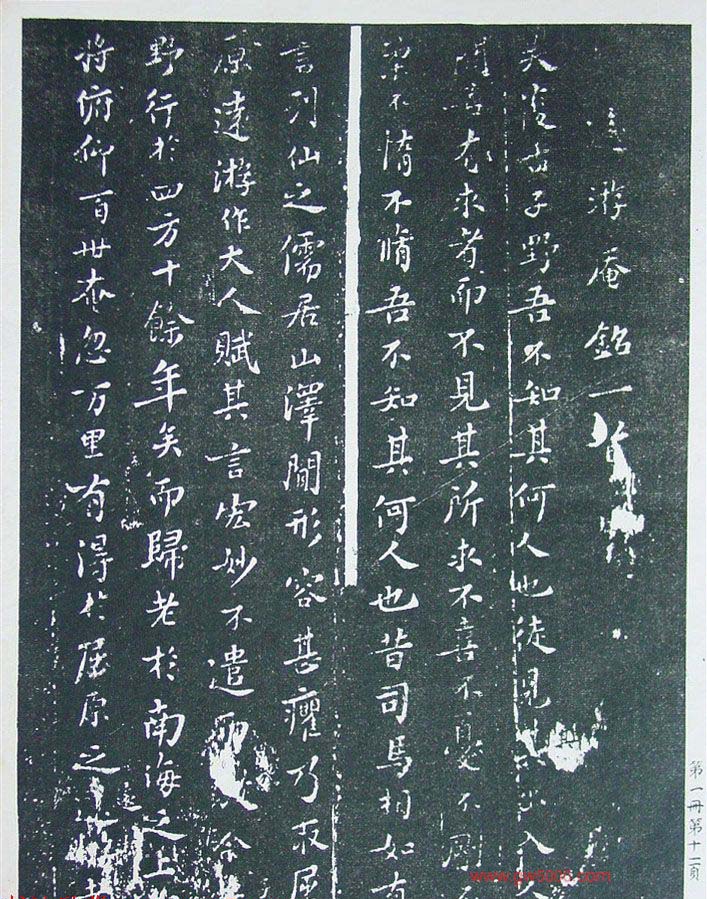 遠游庵銘一首
吳復古子野吾不知其何人也徒見其出入人
間若有求者而不見其所求不喜不憂不剛不
柔不惰不脩吾不知其何人也昔司馬相如有
言列仙之儒居山澤間形容甚癯乃取屈
原遠游作大人賦其言宏妙不遣而放今
野行於四方十餘年矣而歸老於南海之上
將俯仰百世奄忽万里有得於屈原之
第一冊第十一頁